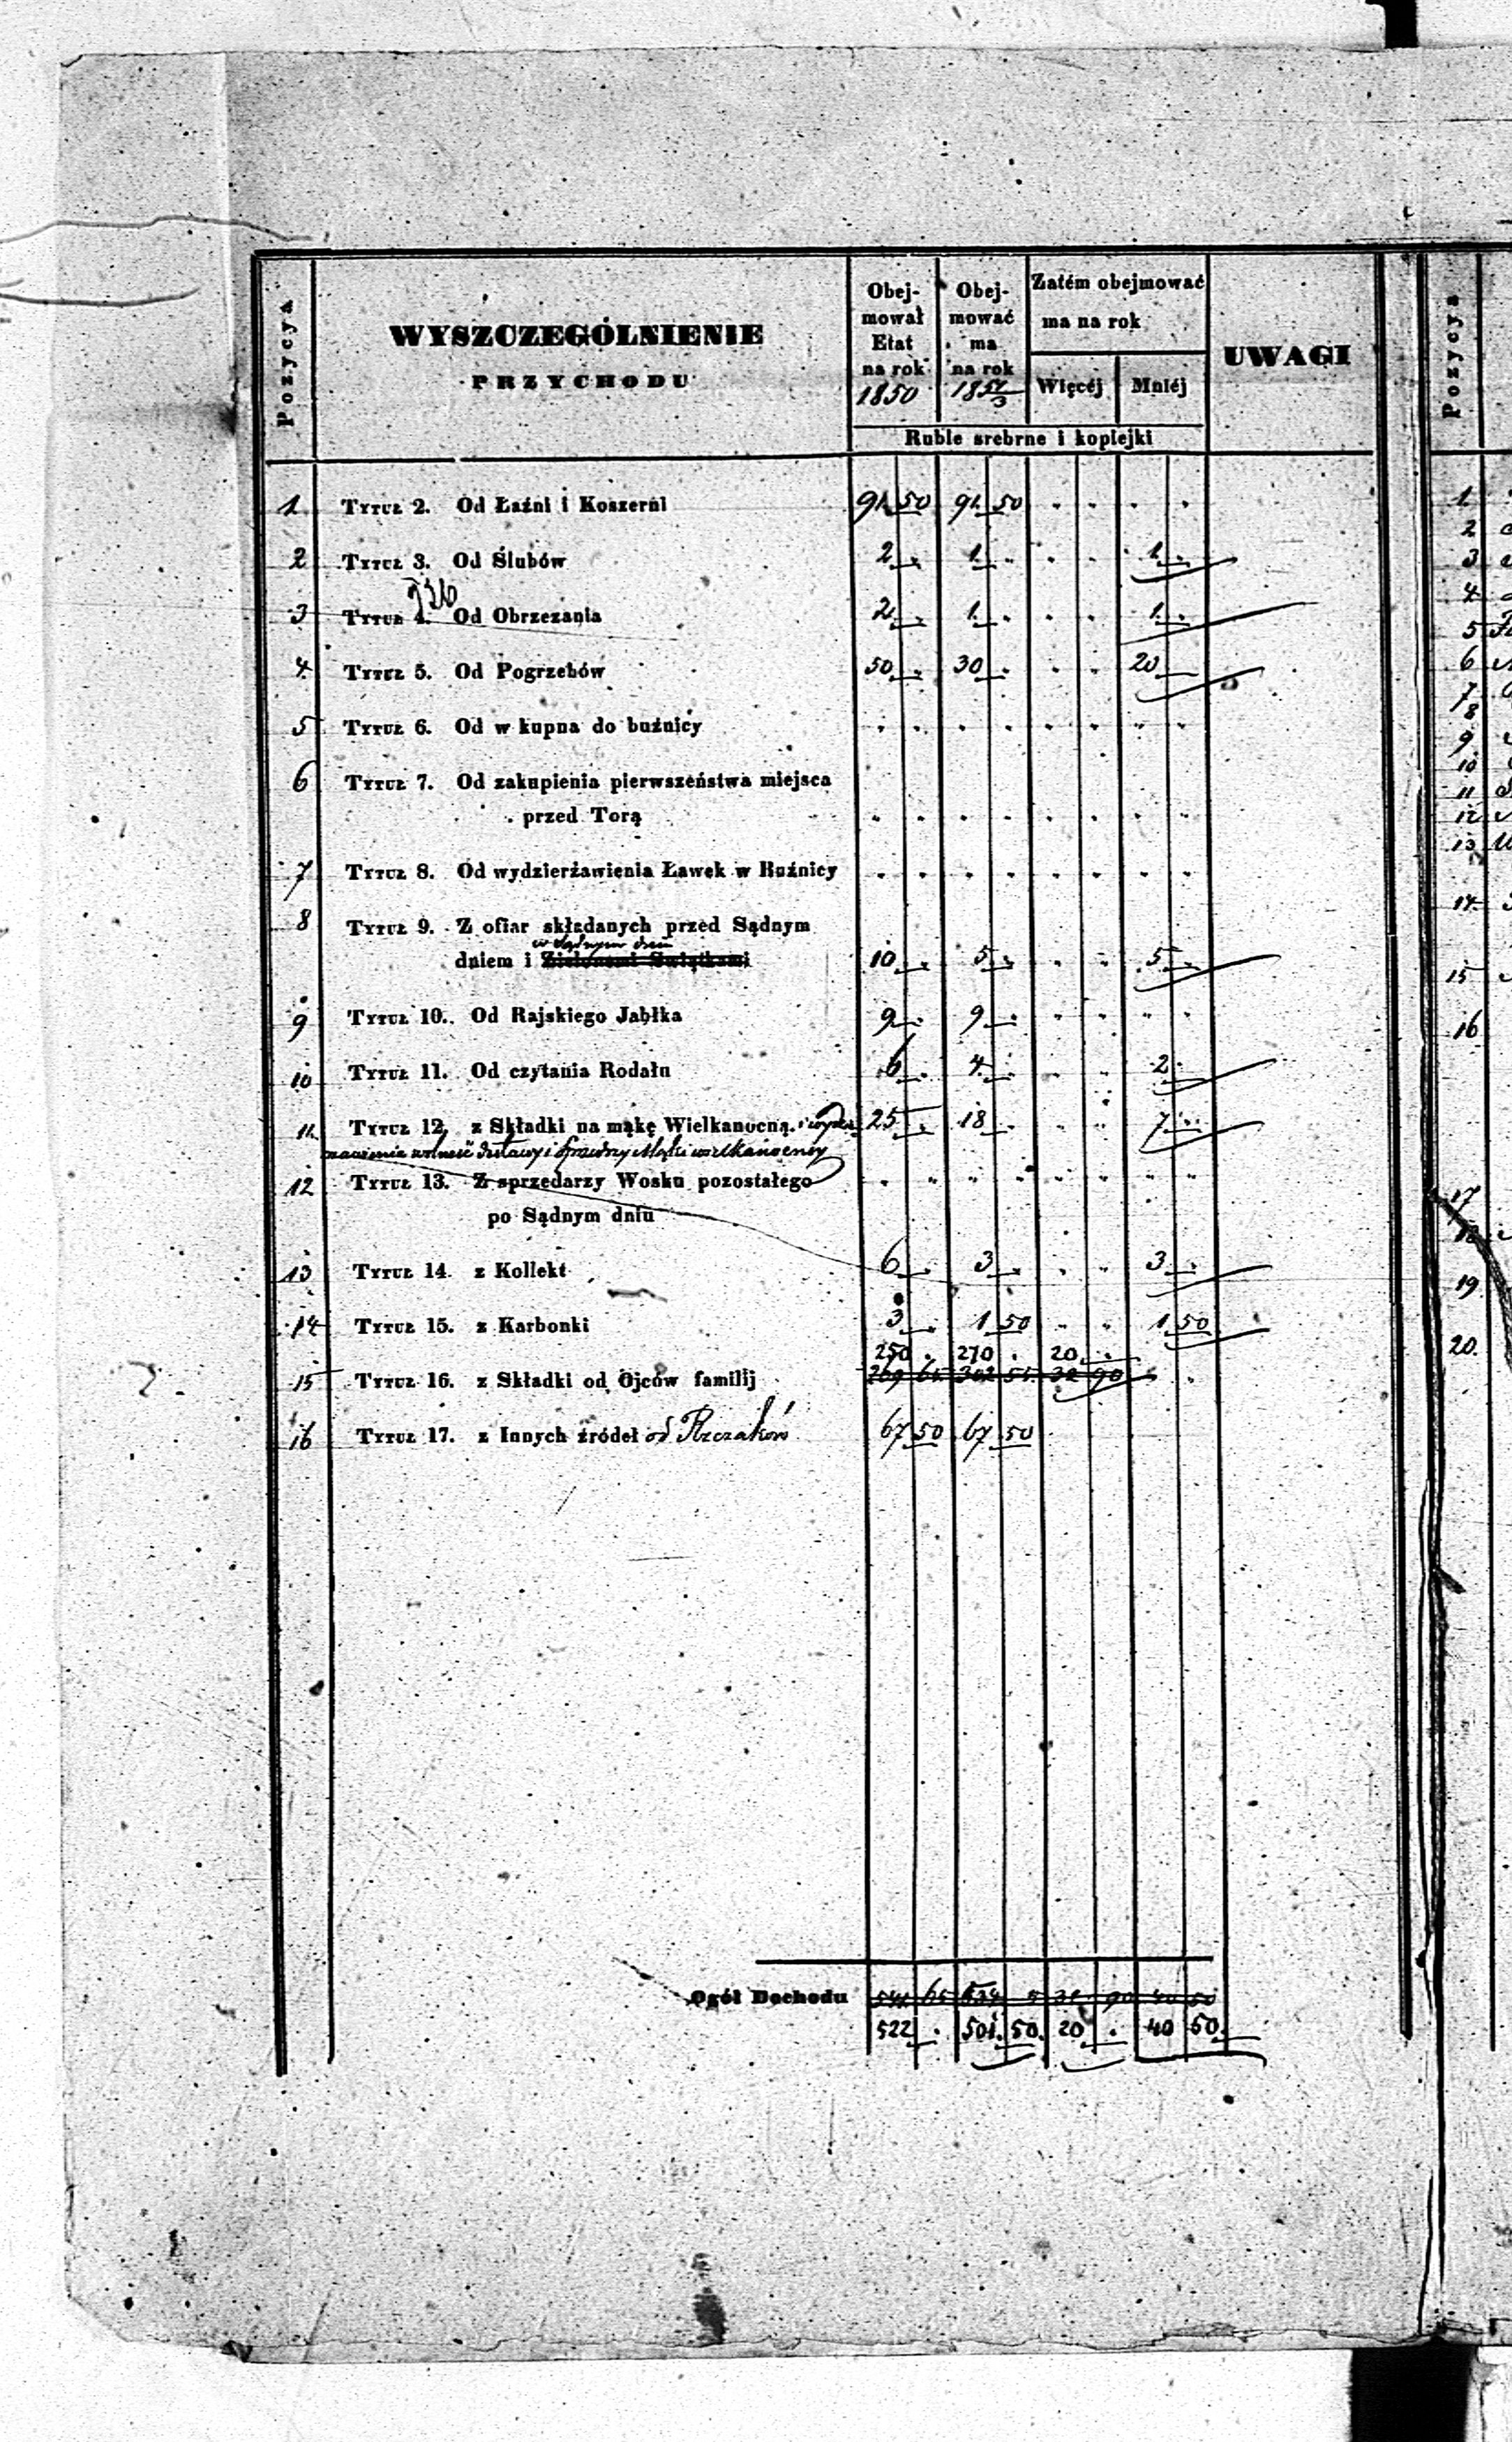 Pozycya
WYSZCZEGÓLNIENIE
PRZYCHODU
Obej-
mował
Etat
na rok
1850
Obej-
mować
ma
na rok
185
Zatém obejmować
ma na rok
Więcéj Mniéj
UWAGI
Ruble srebrne i kopiejki
1 Tytuł 2. Od Łaźni i Koszerni 91. 50 91. 50 . . . .
2 Tytuł 3. Od Ślubów 2 . 1. . . . 1. .
3 Tytuł 4. Od Obrzezania 2 . 1. . . . 1. .
4 Tytuł 5. Od Pogrzebów 50 . 30 . . . 20
5 Tytuł 6. Od wkupna do buźnicy . . . . . . . .
6 Tytuł 7. Od zakupienia pierwszeństwa miejsca
przed Torą . . . . . . . .
7 Tytuł 8. Od wydzierżawienia Ławek w Buźnicy . . . . . . . .
8 Tytuł 9. Z ofiar składanych przed Sądnym
w Sądnym dniu
dniem i Zielonemi Swiątkami 10 . 5 . . . 5 .
9 Tytuł 10. Od Rajskiego Jabłka 9 . 9 . . . . .
10 Tytuł 11. Od czytania Rodału 6 . 4 . . . 2 .
11 Tytuł 12. z Składki na mąkę Wielkanocną. i 25 . 18 . . . 7 .
dostawy i Mąki wielkanocnej
12 Tytuł 13. Z sprzedarzy Wosku pozostałego . . . . . . . .
po Sądnym dniu
13 Tytuł 14. z Kollekt 6 . 3 . . . 3 .
14 Tytuł 15. z Karbonki 3 . 1 50 . . 1 50
250 . 270 . 20 .
15 Tytuł 16. z Składki od Ojców familij 269 65 302 55 32 90 . .
16 Tytuł 17. z Innych źródeł od Rzezaków 67 50 67 50
Ogół Dochodu 541 65 534 5 32 90 40 50
522 . 501. 50. 20 . 40 50.
Pozycya
1
2
3
4
5
6
7
8
9
10
11
12
13
14
15
16
17
18
19
20.